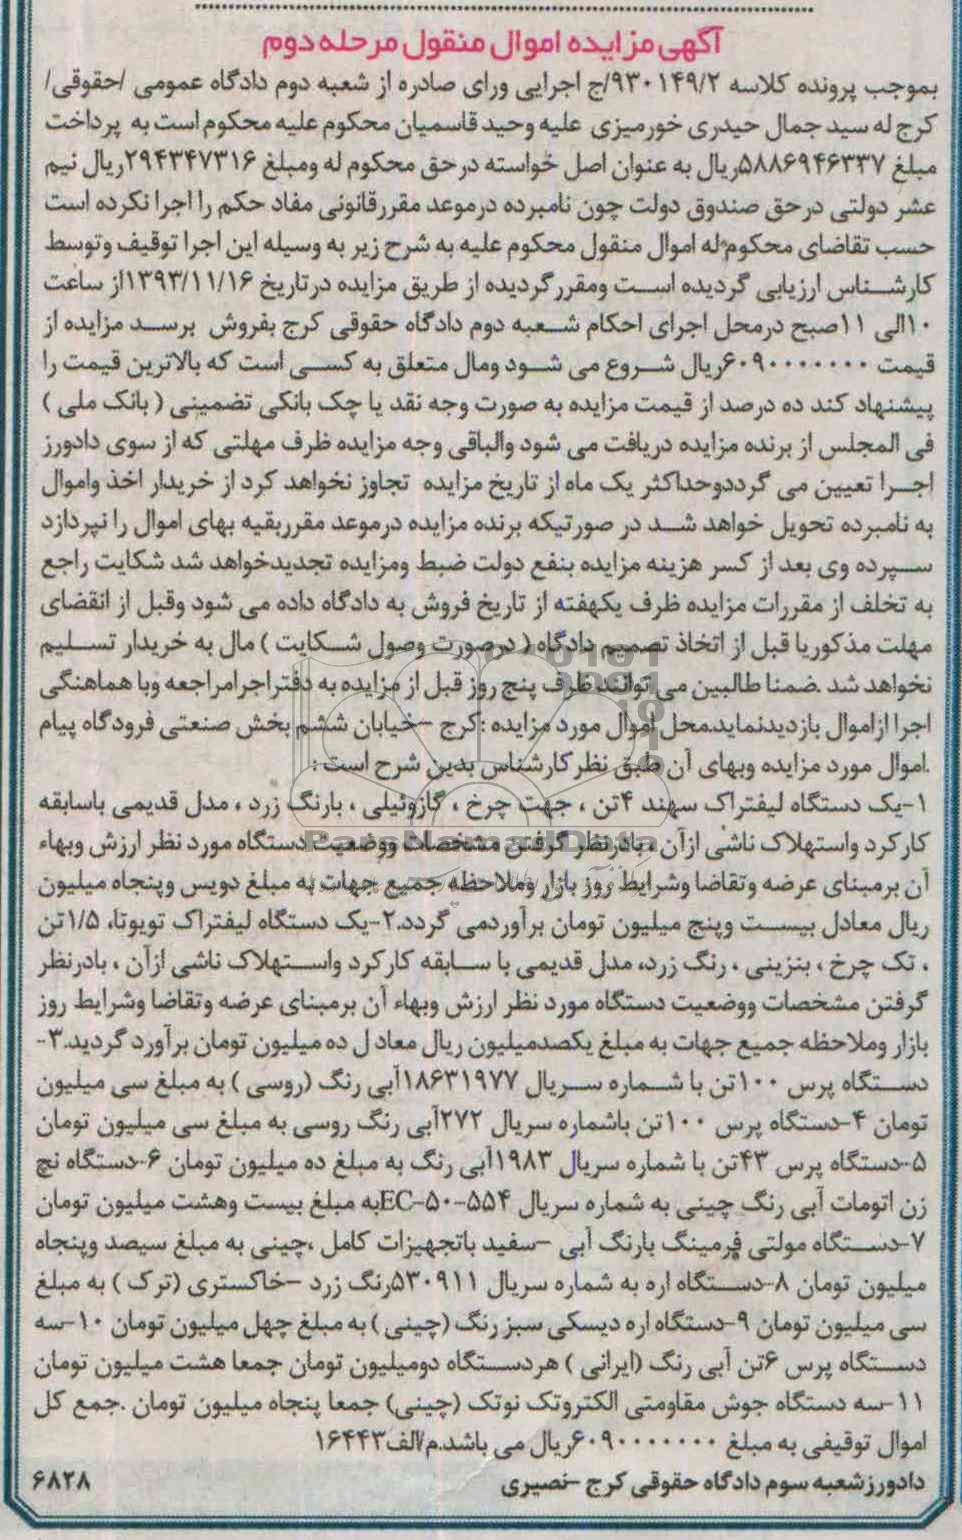 آگهی مزایده اموال منقول مرحله دوم
بموجب پرونده کلاسه ۹۳۰۱۴۹/۲/ج اجرایی ورای صادره از شعبه دوم دادگاه عمومی /حقوقی/
کرج له سید جمال حیدری خورمیزی علیه وحید قاسمیان محکوم علیه محکوم است به پرداخت
مبلغ ۵۸۸۶۹۴۶۳۳۷ریال به عنوان اصل خواسته درحق محکوم له ومبلغ ۲۹۴۳۴۷۳۱۶ریال نیم
عشر دولتی درحق صندوق دولت چون نامبرده درموعد مقررقانونی مفاد حکم را اجرا نکرده است
حسب تقاضای محکوم له اموال منقول محکوم علیه به شرح زیر به وسیله این اجرا توقیف وتوسط
کارشناس ارزیابی گردیده است ومقررگردیده از طریق مزایده درتاریخ ۱۳۹۳/۱۱/۱۶از ساعت
۱۰الی ۱۱صبح درمحل اجرای احکام شعبه دوم دادگاه حقوقی کرج بفروش برسد مزایده از
قیمت ۶۰۹۰۰۰۰۰۰۰ریال شروع می شود ومال متعلق به کسی است که بالاترین قیمت را
پیشنهاد کند ده درصد از قیمت مزایده به صورت وجه نقد یا چک بانکی تضمینی ( بانک ملی )
فی المجلس از برنده مزایده دریافت می شود والباقی وجه مزایده ظرف مهلتی که از سوی دادورز
اجرا تعیین می گرددوحداکثر یک ماه از تاریخ مزایده تجاوز نخواهد کرد از خریدار اخذ واموال
به نامبرده تحویل خواهد شد در صورتیکه برنده مزایده درموعد مقرربقیه بهای اموال را نپردازد
سپرده وی بعد از کسر هزینه مزایده بنفع دولت ضبط ومزایده تجدیدخواهد شد شکایت راجع
به تخلف از مقررات مزایده ظرف یکهفته از تاریخ فروش به دادگاه داده می شود وقبل از انقضای
مهلت مذکوریا قبل از اتخاذ تصمیم دادگاه ( درصورت وصول شکایت ) مال به خریدار تسلیم
نخواهد شد .ضمنا طالبین می توانند ظرف پنج روز قبل از مزایده به دفتراجرامراجعه وبا هماهنگی
اجرا ازاموال بازدیدنماید.محل اموال مورد مزایده :کرج –خیابان ششم بخش صنعتی فرودگاه پیام
.اموال مورد مزایده وبهای آن طبق نظر کارشناس بدین شرح است :
۱-یک دستگاه لیفتراک سهند ۴تن ، جهت چرخ ، گازوئیلی ، بارنگ زرد ، مدل قدیمی باسابقه
کارکرد واستهلاک ناشی ازآن ، بادرنظر گرفتن مشخصات ووضعیت دستگاه مورد نظر ارزش وبهاء
آن برمبنای عرضه وتقاضا وشرایط روز بازار وملاحظه جمیع جهات به مبلغ دویس وپنجاه میلیون
ریال معادل بیست وپنج میلیون تومان برآوردمی گردد.۲-یک دستگاه لیفتراک تویوتا، ۱/۵تن
، تک چرخ ، بنزینی ، رنگ زرد، مدل قدیمی با سابقه کارکرد واستهلاک ناشی ازآن ، بادرنظر
گرفتن مشخصات ووضعیت دستگاه مورد نظر ارزش وبهاء آن برمبنای عرضه وتقاضا وشرایط روز
بازار وملاحظه جمیع جهات به مبلغ یکصدمیلیون ریال معاد ل ده میلیون تومان برآورد گردید.۳-
دستگاه پرس ۱۰۰تن با شماره سریال ۱۸۶۳۱۹۷۷آبی رنگ (روسی ) به مبلغ سی میلیون
تومان ۴-دستگاه پرس ۱۰۰تن باشماره سریال ۲۷۲آبی رنگ روسی به مبلغ سی میلیون تومان
۵-دستگاه پرس ۴۳تن با شماره سریال ۱۹۸۳آبی رنگ به مبلغ ده میلیون تومان ۶-دستگاه نخ
زن اتومات آبی رنگ چینی به شماره سریال EC-۵۰-۵۵۴به مبلغ بیست وهشت میلیون تومان
۷-دستگاه مولتی فرمینگ بارنگ آبی –سفید باتجهیزات کامل ،چینی به مبلغ سیصد وپنجاه
میلیون تومان ۸-دستگاه اره به شماره سریال ۵۳۰۹۱۱رنگ زرد –خاکستری (ترک ) به مبلغ
سی میلیون تومان ۹-دستگاه اره دیسکی سبز رنگ (چینی ) به مبلغ چهل میلیون تومان ۱۰-سه
دستگاه پرس ۶تن آبی رنگ (ایرانی ) هردستگاه دومیلیون تومان جمعا هشت میلیون تومان
۱۱-سه دستگاه جوش مقاومتی الکتروتک نوتک (چینی) جمعا پنجاه میلیون تومان .جمع کل
اموال توقیفی به مبلغ ۶۰۹۰۰۰۰۰۰۰ریال می باشد.م/الف۱۶۴۴۳
دادورزشعبه سوم دادگاه حقوقی کرج –نصیری
۶۸۲۸
ParsNamadData